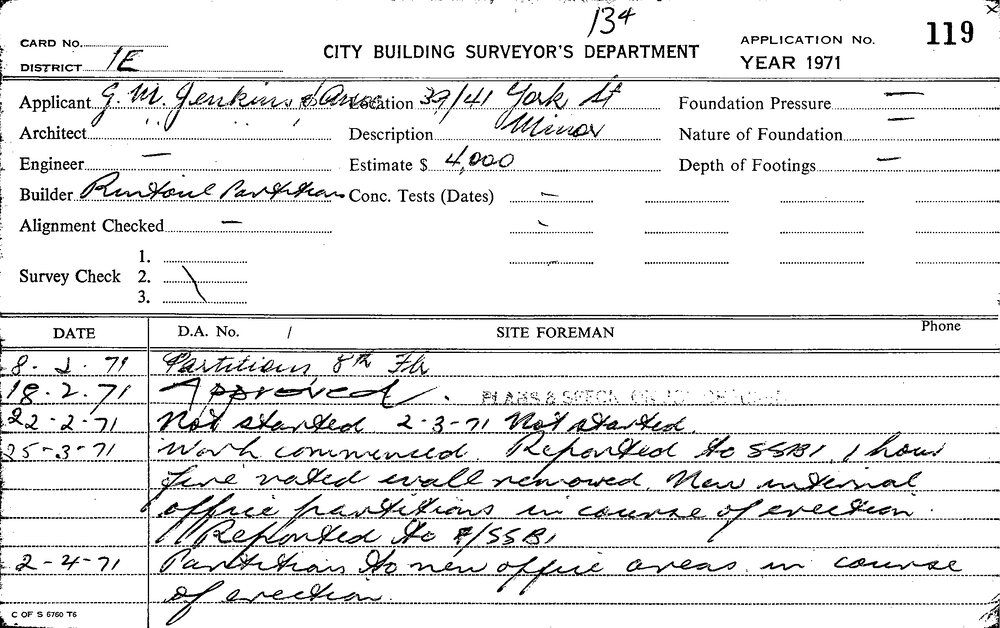 134
119
CARD No.
CITY BUILDING SURVEYOR'S DEPARTMENT
APPLICATION No.
DISTRICT 1E
YEAR 1971
Applicant G. M. Jenkins & Assoc Location 39/41 York St Foundation Pressure —
Architect " " " Description Minor Nature of Foundation —
Engineer — Estimate $ 4,000 Depth of Footings —
Builder Partitions Conc. Tests (Dates) —
Alignment Checked —
1.
Survey Check 2.
3.
DATE D.A. No. / SITE FOREMAN Phone
8. 2. 71 Partitions 8th Flr
18.2.71 Approved. PLANS & SPECS. ON
22-2-71 Not started 2-3-71 Not started.
25-3-71 Work commenced. Reported to SSBI 1 hour
fire rated wall removed. New internal
office partitions in course of erection.
Reported to /SSBI
2-4-71 Partitions to new office areas in course
of erection.
C OF S 6760 T6